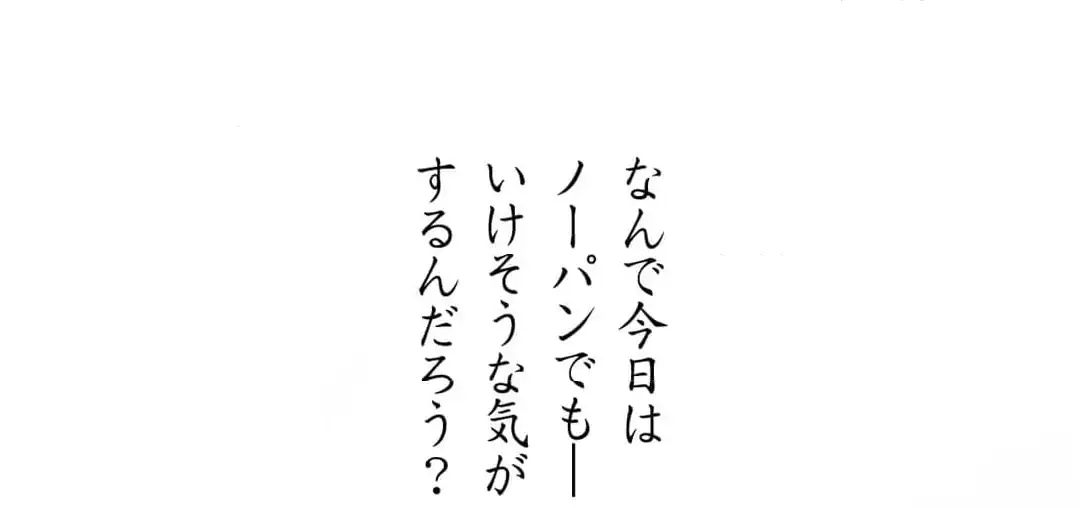 なんで今日は
ノーパンでも―
いけそうな気が
するんだろう？